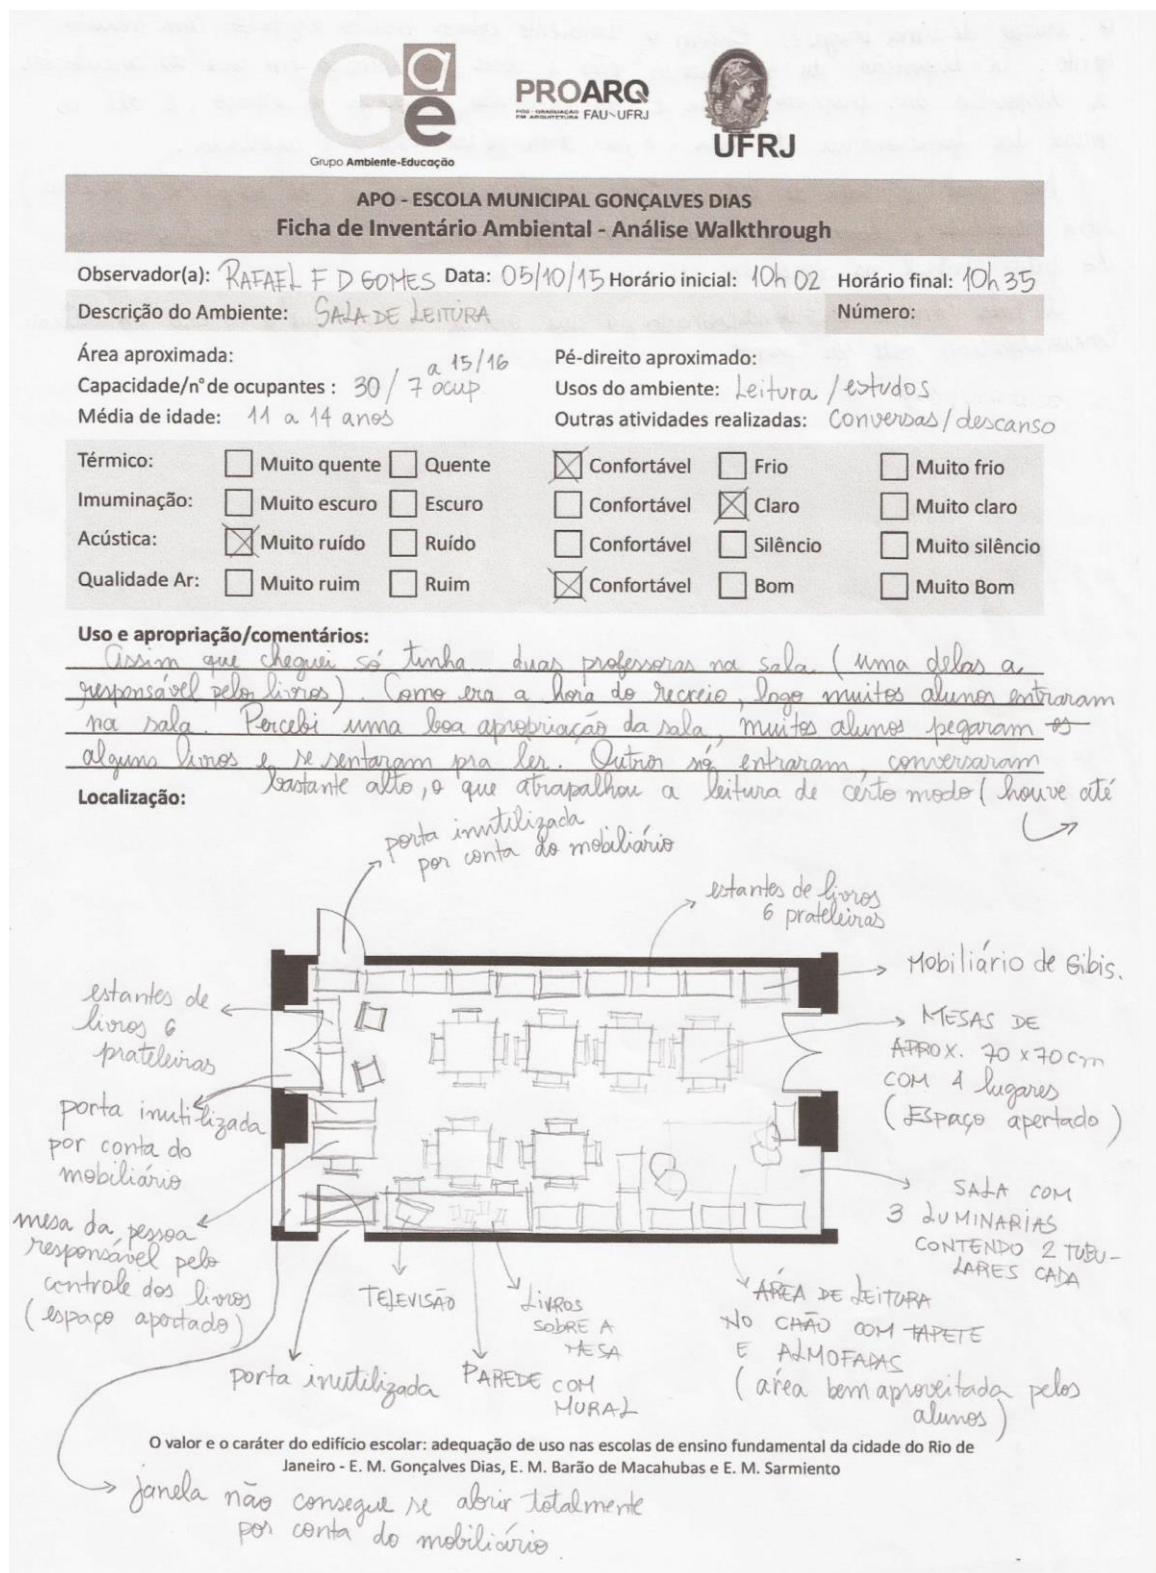 Gae
Grupo Ambiente-Educação
PROARQ
PÓS-GRADUAÇÃO
EM ARQUITETURA FAU-UFRJ
UFRJ
APO - ESCOLA MUNICIPAL GONÇALVES DIAS
Ficha de Inventário Ambiental - Análise Walkthrough
Observador(a): RAFAEL F D GOMES Data: 05/10/15 Horário inicial: 10h 02 Horário final: 10h 35
Descrição do Ambiente: SALA DE LEITURA Número:
Área aproximada: Pé-direito aproximado:
Capacidade/nº de ocupantes : 30 / 7 ocup a 15/16 Usos do ambiente: Leitura / estudos
Média de idade: 11 a 14 anos Outras atividades realizadas: Conversas/descanso
Térmico: Muito quente Quente Confortável Frio Muito frio
Imuminação: Muito escuro Escuro Confortável Claro Muito claro
Acústica: Muito ruído Ruído Confortável Silêncio Muito silêncio
Qualidade Ar: Muito ruim Ruim Confortável Bom Muito Bom
Uso e apropriação/comentários:
Assim que cheguei só tinha duas professoras na sala (uma delas a
responsável pelos livros). Como era a hora do recreio, logo muitos alunos entraram
na sala. Percebi uma boa apropriação da sala, muitos alunos pegaram os
alguns livros e se sentaram pra ler. Outros só entraram, conversaram
bastante alto, o que atrapalhou a leitura de certo modo (houve até
Localização:
porta inutilizada
por conta do mobiliário
estantes de livros
6 prateleiras
Mobiliário de Gibis.
estantes de
livros 6
prateleiras
MESAS DE
APROX. 70 x 70 cm
COM 4 lugares
(Espaço apertado)
porta inutilizada
por conta do
mobiliário
SALA COM
3 LUMINARIAS
CONTENDO 2 TUBU-
LARES CADA
mesa da pessoa
responsável pelo
controle dos livros
(espaço apertado)
TELEVISÃO
LIVROS
SOBRE A
MESA
ÁREA DE LEITURA
NO CHÃO COM TAPETE
E ALMOFADAS
(área bem aproveitada pelos
alunos)
porta inutilizada
PAREDE COM
MURAL
O valor e o caráter do edifício escolar: adequação de uso nas escolas de ensino fundamental da cidade do Rio de
Janeiro - E. M. Gonçalves Dias, E. M. Barão de Macahubas e E. M. Sarmiento
janela não consegue se abrir totalmente
por conta do mobiliário.